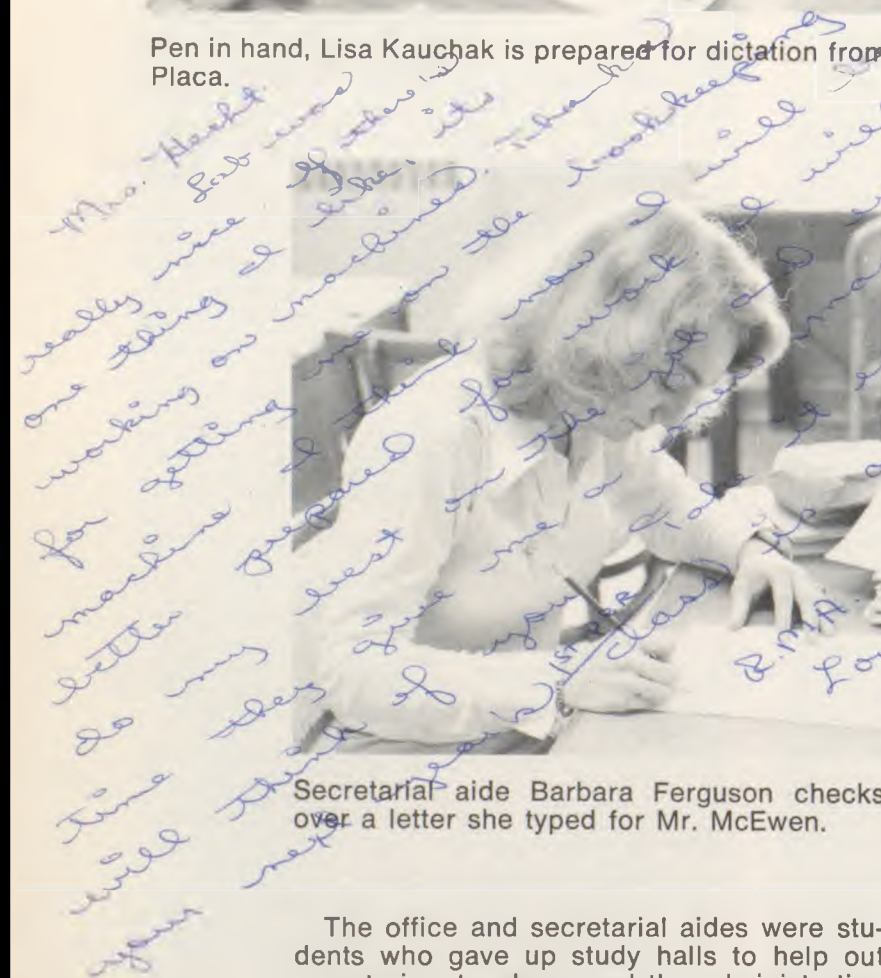 Pen in hand, Lisa Kauchak is prepared for dictation from
Placa.
Mrs. Hecht.
Lab was
really nice. If there's
one thing I like, its
working on machines. Thank
for getting me on the bookkeeping
machine I think now I will
better prepared for work. I will
do my best on the job and
time they give me a new
will think of you. Take it
your next year's 1ST PER class is
R.M.A.
Secretarial aide Barbara Ferguson checks
over a letter she typed for Mr. McEwen.
The office and secretarial aides were stu-
dents who gave up study halls to help out